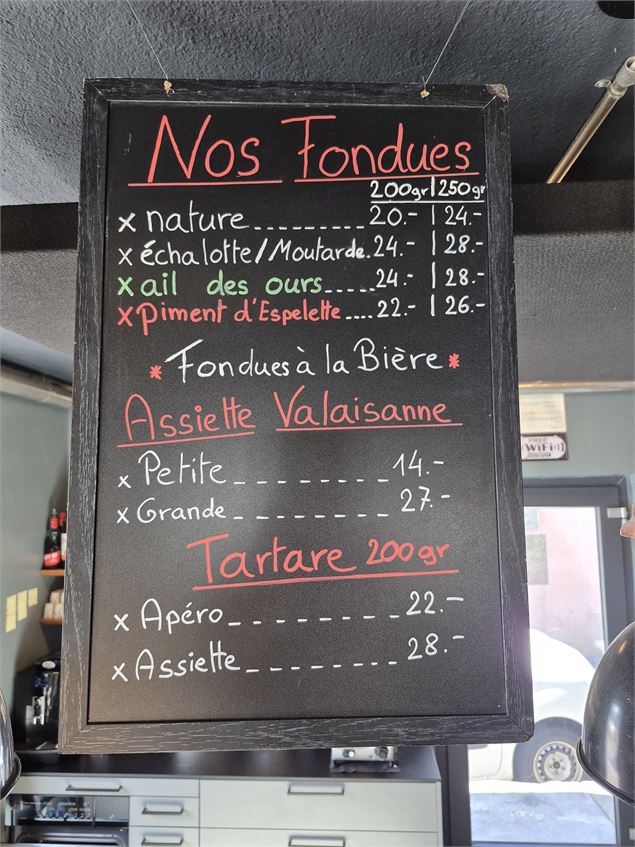 Nos Fondues
200gr | 250gr
x nature......... 20.- | 24.-
x échalotte/Moutarde. 24.- | 28.-
x ail des ours..... 24.- | 28.-
x Piment d'Espelette.... 22.- | 26.-
* Fondues à la Bière *
Assiette Valaisanne
x Petite _ _ _ _ _ _ _ _ 14.-
x Grande _ _ _ _ _ _ _ _ 27.-
Tartare 200gr
x Apéro _ _ _ _ _ _ _ _ 22.-
x Assiette _ _ _ _ _ _ _ _ 28.-
FREE
WiFi